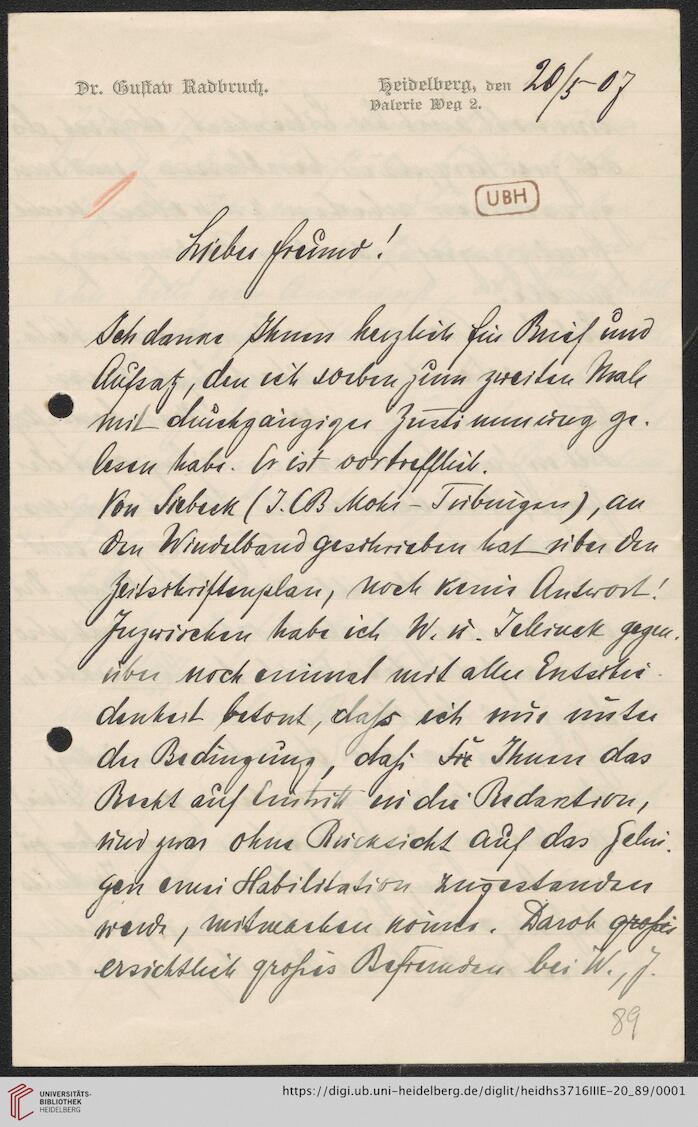 Dr. Gustav Radbruch.
Heidelberg, den 20/5 07
Valerie Weg 2.
UBH
Lieber Freund!
Ich danke Ihnen herzlich für Brief und
Aufsatz, den ich soeben zum zweiten Male
mit durchgängiger Zustimmung ge-
lesen habe. Er ist vortrefflich.
Von Siebeck (I. C B Mohr - Tübingen), an
den Windelband geschrieben hat über den
Zeitschriftenplan, noch keine Antwort!
Inzwischen habe ich W. u. Jellinek gegen-
über noch einmal mit aller Entschie-
denheit betont, dass ich nur unter
der Bedingung, daß Sie Ihnen das
Recht auf Eintritt in die Redaktion,
und zwar ohne Rücksicht auf das Gelin-
gen einer Habilitation zugestanden
werde, mitmachen könne. Darob großes
ersichtlich großes Befremden bei W., J.
89
UNIVERSITÄTS-
BIBLIOTHEK
HEIDELBERG
https://digi.ub.uni-heidelberg.de/diglit/heidhs3716IIIE-20_89/0001